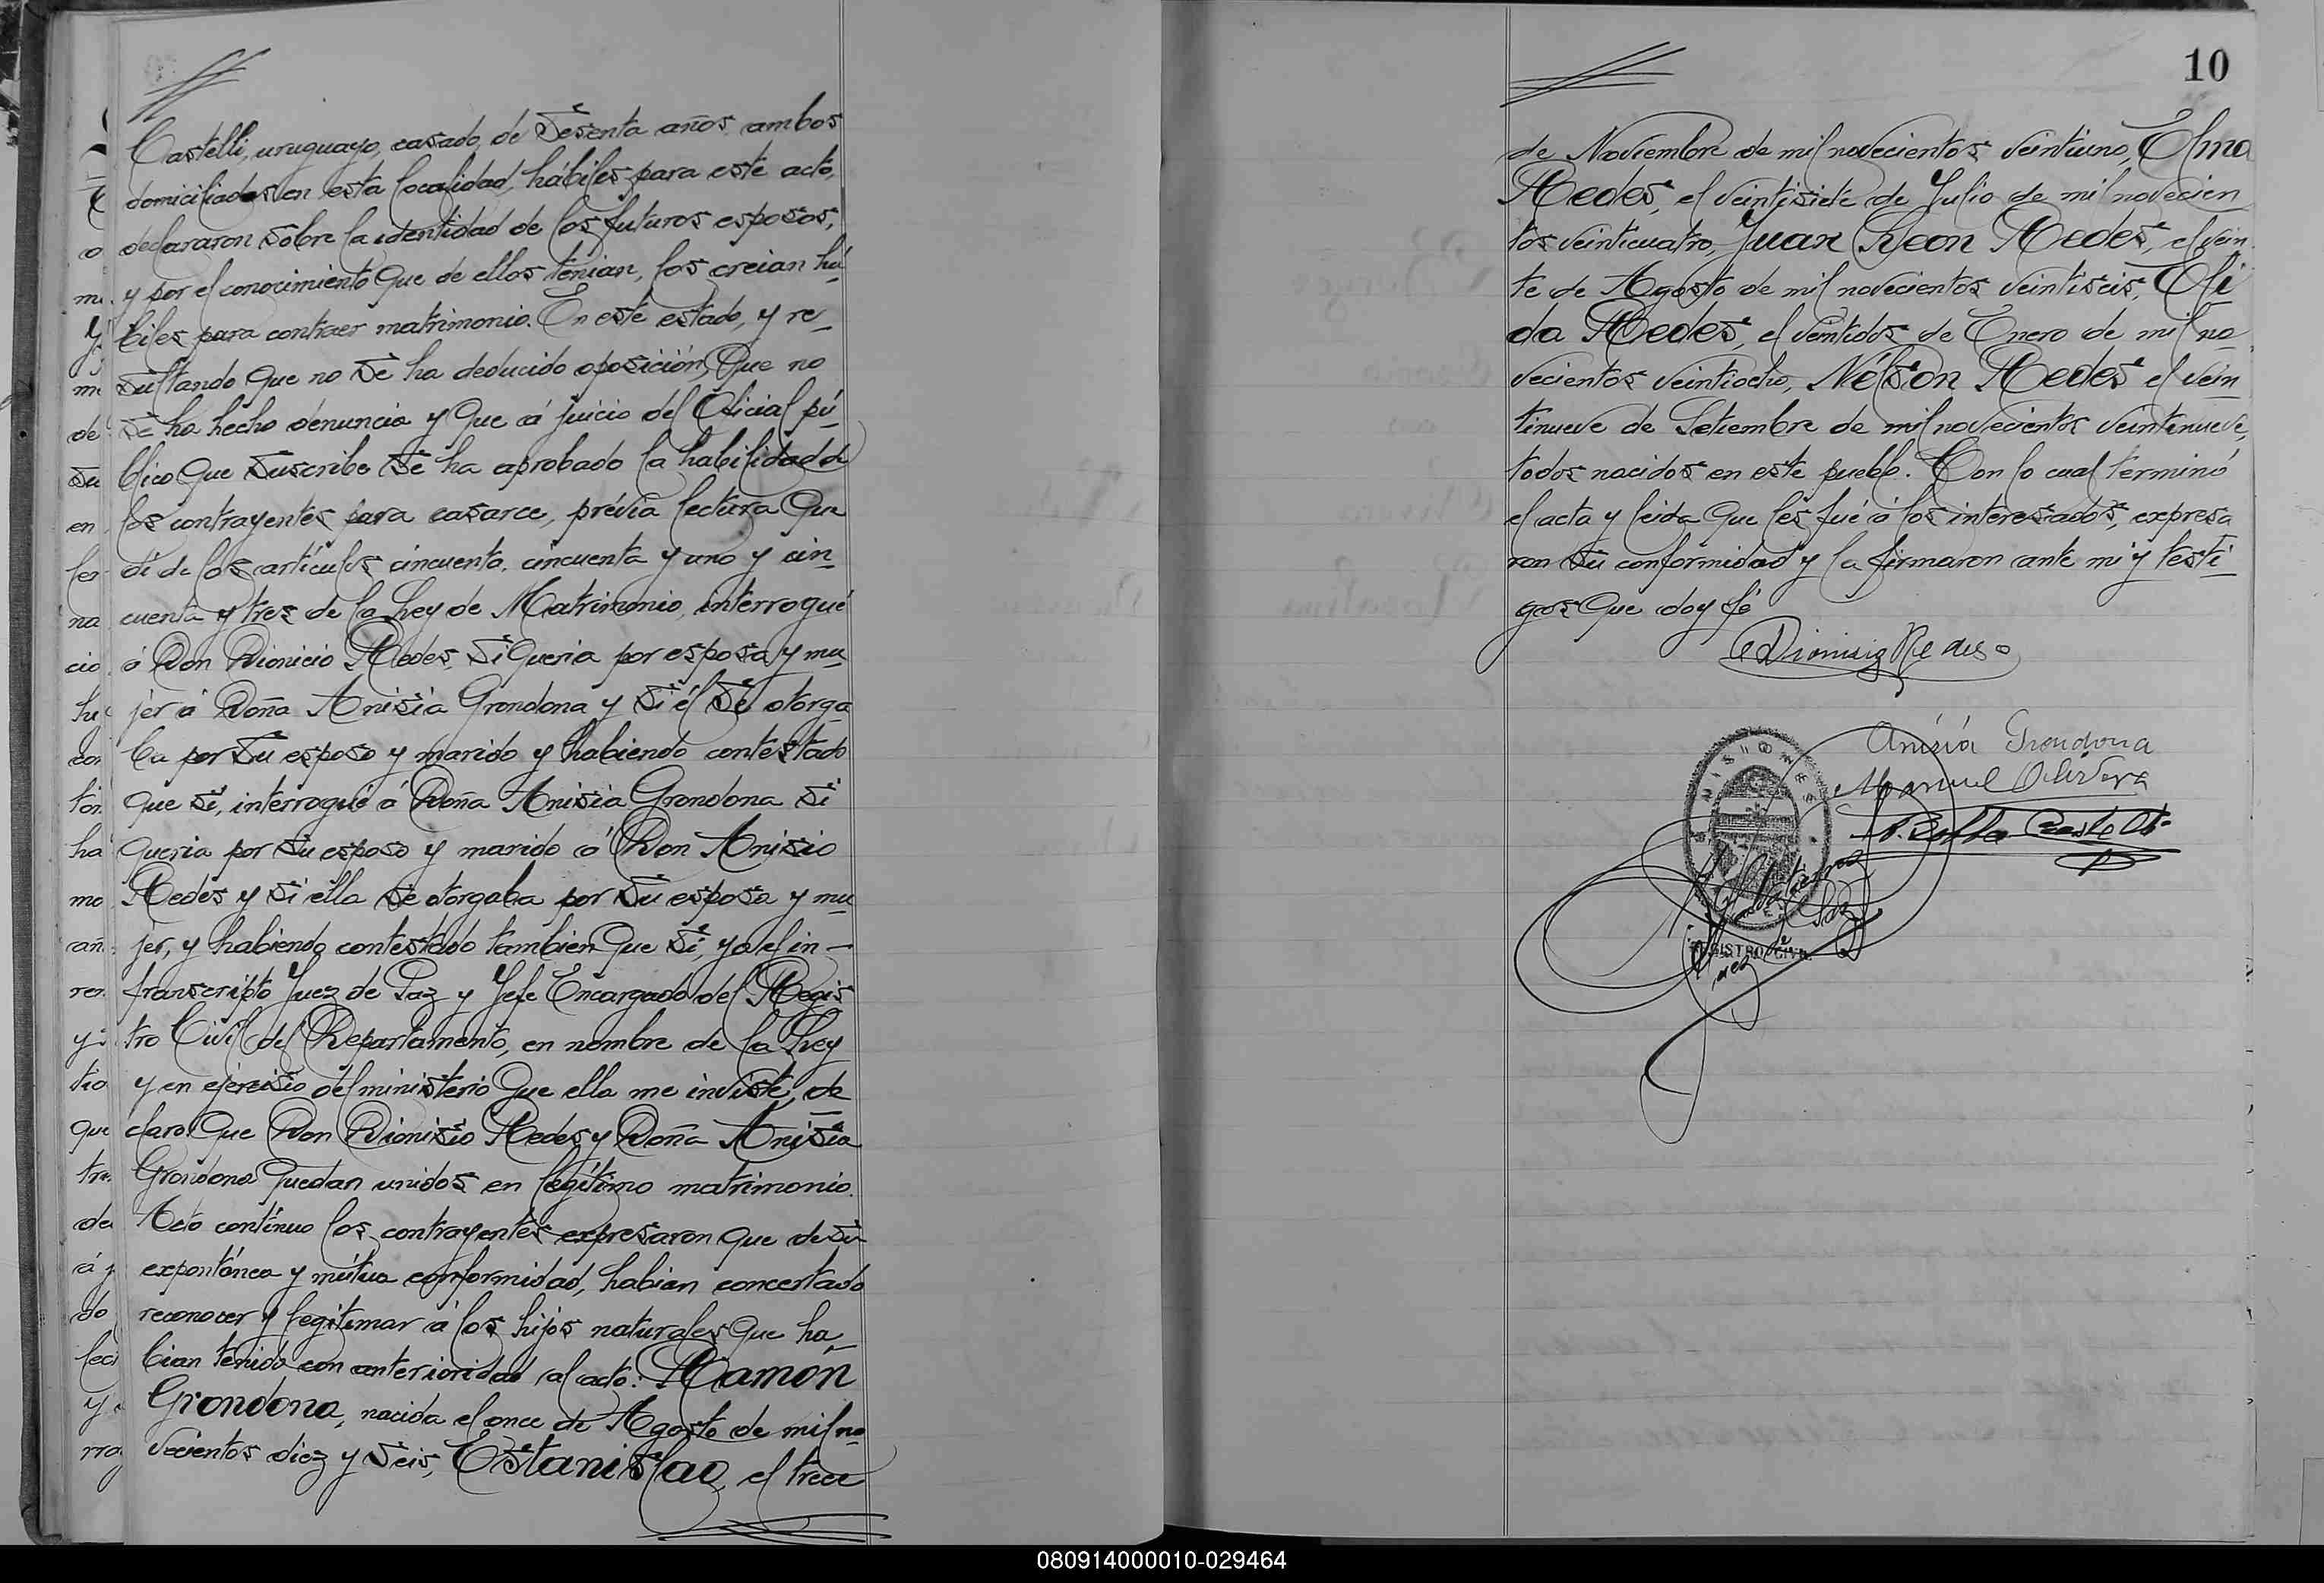 Castelli, uruguayo, casado, de Sesenta años, ambos
domiciliados en esta localidad, hábiles para este acto,
declararon Sobre la identidad de los futuros esposos,
y por el conocimiento que de ellos tenian, los creian há-
biles para contraer matrimonio. En este estado, y re-
sultando que no Se ha deducido oposición, Que no
Se ha hecho denuncia y Que á juicio del Oficial pú-
blico Que Suscribe Se ha aprobado la habilidad de
los contrayentes para casarce, prévia lectura Que
dí de los artículos cincuenta, cincuenta y uno y cin-
cuenta y tres de la Ley de Matrimonio, interrogué
á Don Dionicio Redes, Si Queria por esposa y mu-
jer á Doña Anisia Grondona y Si él Se otorga
ba por Su esposo y marido y habiendo contestado
Que Si, interrogué á Doña Anisia Grondona Si
Queria por Su esposo y marido á Don Anisio
Redes y Si ella Se otorgaba por Su esposa y mu-
jer, y habiendo contestado tambien Que Si, yo el in-
franscripto Juez de Paz y Jefe Encargado del Regis
tro Civil del Departamento, en nombre de la Ley
y en ejercisio del ministerio Que ella me inviste, de
claro Que Don Dionisio Redes y Doña Anisia
Grondona Quedan unidos en legítimo matrimonio.
Acto contínuo los contrayentes expresaron Que de Su
expontánea y mútua conformidad, habian concertado
reconocer y legitimar á los hijos naturales Que ha-
bian tenido con anterioridad al acto: Ramón
Grondona, nacida el once de Agosto de mil no-
vecientos diez y Seis, Estanislao, el trece
10
de Noviembre de mil novecientos veintiuno, Elma
Redes, el veintisiete de Julio de mil novecien
tos veinticuatro, Juan Leon Redes, el vein
te de Agosto de mil novecientos veintiseis, Eli
da Redes, el veintidos de Enero de mil no
vecientos veintiocho, Nélson Redes el vein
tinueve de Setiembre de mil novecientos veintinueve,
todos nacidos en este pueblo. Con lo cual terminó
el acta y leida Que les fué á los interesados, expresa
ron Su conformidad y la firmaron ante mi y testi-
gos Que doy fé
Dionisio Redes
Anisia Grondona
Manuel Olivera
Castelli
MISIONES
REGISTRO CIVIL
Juez de Paz
080914000010-029464